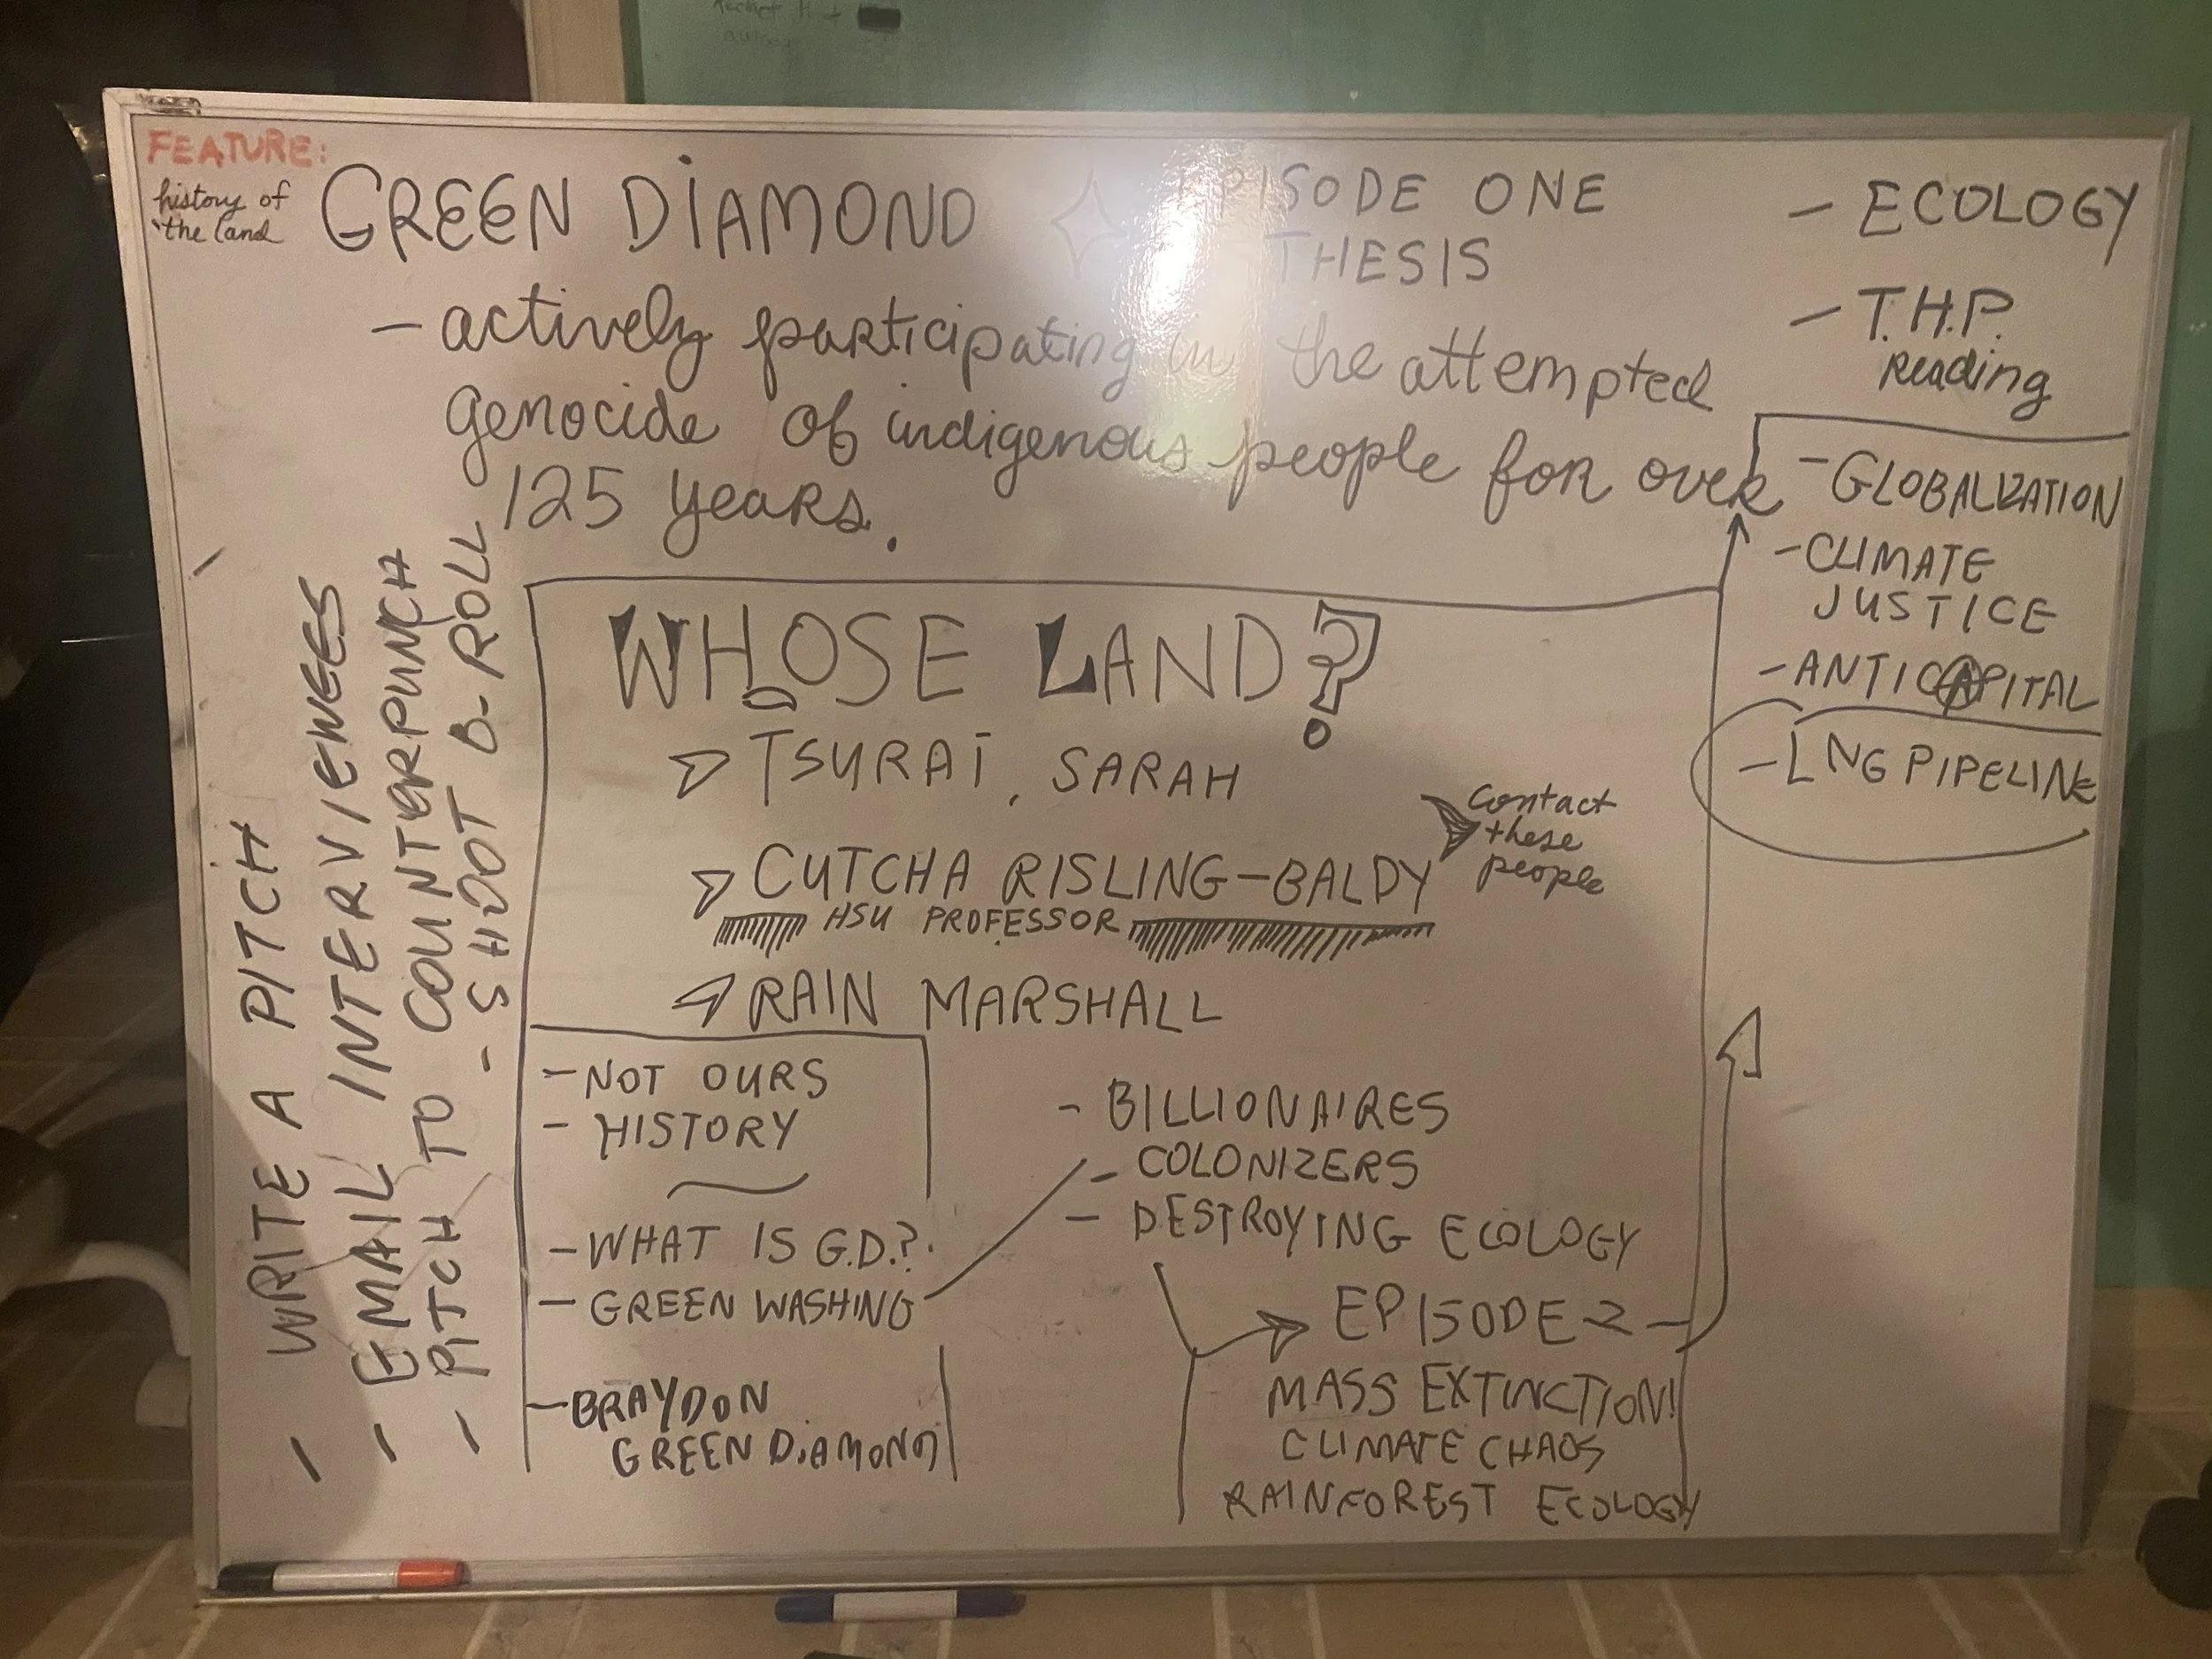 FEATURE:
history of
the land
GREEN DIAMOND
EPISODE ONE
THESIS
- actively participating in the attempted
genocide of indigenous people for over
125 years.
- ECOLOGY
- T.H.P.
Reading
- GLOBALIZATION
- CLIMATE
JUSTICE
- ANTICAPITAL
- LNG PIPELINE
- WRITE A PITCH
- EMAIL INTERVIEWEES
- PITCH TO COUNTERPUNCH
- SHOOT B-ROLL
WHOSE LAND?
TSURAI, SARAH
CUTCHA RISLING-BALDY
HSU PROFESSOR
Contact
these
people
RAIN MARSHALL
- NOT OURS
- HISTORY
- WHAT IS G.D.?
- GREEN WASHING
- BRAYDON
GREEN DIAMOND
- BILLIONAIRES
- COLONIZERS
- DESTROYING ECOLOGY
EPISODE 2
MASS EXTINCTION!
CLIMATE CHAOS
RAINFOREST ECOLOGY